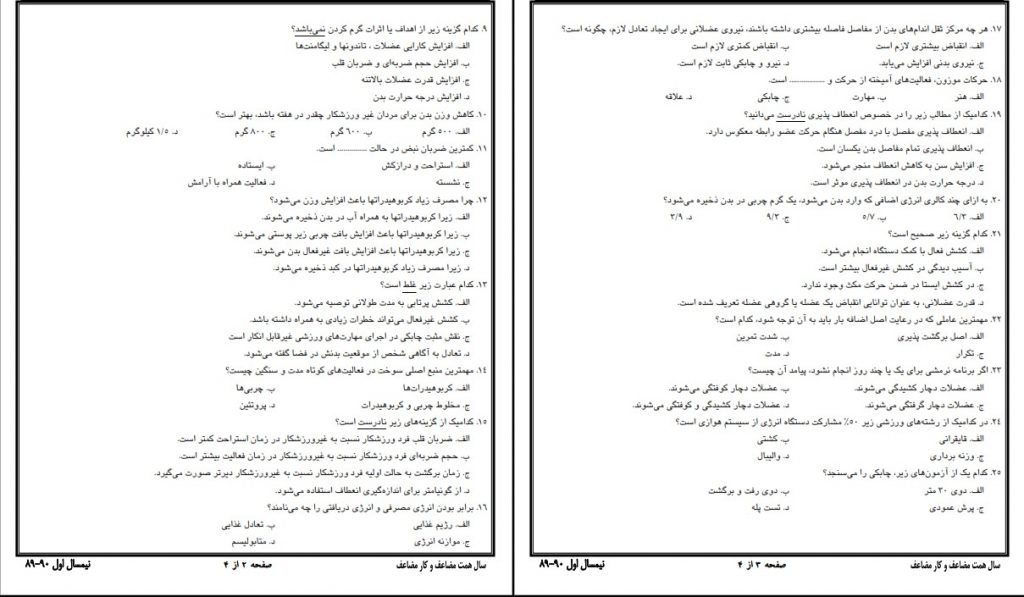 ۱۷. هر چه مرکز ثقل اندام‌های بدن از مفاصل فاصله بیشتری داشته باشند، نیروی عضلانی برای ایجاد تعادل لازم، چگونه است؟
الف. انقباض بیشتری لازم است ب. انقباض کمتری لازم است
ج. نیروی بدنی افزایش می‌یابد. د. نیرو و چابکی ثابت لازم است.
۱۸. حرکات موزون، فعالیت‌های آمیخته از حرکت و .................. است.
الف. هنر ب. مهارت ج. چابکی د. علاقه
۱۹. کدامیک از مطالب زیر را در خصوص انعطاف پذیری نادرست می‌دانید؟
الف. انعطاف پذیری مفصل با درد مفصل هنگام حرکت عضو رابطه معکوس دارد.
ب. انعطاف پذیری تمام مفاصل بدن یکسان است.
ج. افزایش سن به کاهش انعطاف منجر می‌شود.
د. درجه حرارت بدن در انعطاف پذیری موثر است.
۲۰. به ازای چند کالری انرژی اضافی که وارد بدن می‌شود، یک گرم چربی در بدن ذخیره می‌شود؟
الف. ۶/۳ ب. ۵/۷ ج. ۹/۳ د. ۳/۹
۲۱. کدام گزینه زیر صحیح است؟
الف. کشش فعال با کمک دستگاه انجام می‌شود.
ب. آسیب دیدگی در کشش غیرفعال بیشتر است.
ج. در کشش ایستا در ضمن حرکت مکث وجود ندارد.
د. قدرت عضلانی، به عنوان توانایی انقباض یک عضله یا گروهی عضله تعریف شده است.
۲۲. مهمترین عاملی که در رعایت اصل اضافه بار باید به آن توجه شود، کدام است؟
الف. اصل برگشت پذیری ب. شدت تمرین
ج. تکرار د. مدت
۲۳. اگر برنامه نرمشی برای یک یا چند روز انجام نشود، پیامد آن چیست؟
الف. عضلات دچار کشیدگی می‌شوند. ب. عضلات دچار کوفتگی می‌شوند.
ج. عضلات دچار گرفتگی می‌شوند. د. عضلات دچار کشیدگی و کوفتگی می‌شوند.
۲۴. در کدامیک از رشته‌های ورزشی زیر ۵۰٪ مشارکت دستگاه انرژی از سیستم هوازی است؟
الف. قایقرانی ب. کشتی
ج. وزنه برداری د. والیبال
۲۵. کدام یک از آزمون‌های زیر، چابکی را می‌سنجد؟
الف. دوی ۳۰ متر ب. دوی رفت و برگشت
ج. پرش عمودی د. تست پله
سال همت مضاعف و کار مضاعف صفحه ۳ از ۴ نیمسال اول ۹۰-۸۹
۹. کدام گزینه زیر از اهداف یا اثرات گرم کردن نمی‌باشد؟
الف. افزایش کارایی عضلات ، تاندونها و لیگامنت‌ها
ب. افزایش حجم ضربه‌ای و ضربان قلب
ج. افزایش قدرت عضلات بالاتنه
د. افزایش درجه حرارت بدن
۱۰. کاهش وزن بدن برای مردان غیر ورزشکار چقدر در هفته باشد، بهتر است؟
الف. ۵۰۰ گرم ب. ۶۰۰ گرم ج. ۸۰۰ گرم د. ۱/۵ کیلوگرم
۱۱. کمترین ضربان نبض در حالت .............. است.
الف. استراحت و درازکش ب. ایستاده
ج. نشسته د. فعالیت همراه با آرامش
۱۲. چرا مصرف زیاد کربوهیدراتها باعث افزایش وزن می‌شود؟
الف. زیرا کربوهیدراتها به همراه آب در بدن ذخیره می‌شوند.
ب. زیرا کربوهیدراتها باعث افزایش بافت چربی زیر پوستی می‌شوند.
ج. زیرا کربوهیدراتها باعث افزایش بافت غیرفعال بدن می‌شوند.
د. زیرا مصرف زیاد کربوهیدراتها در کبد ذخیره می‌شود.
۱۳. کدام عبارت زیر غلط است؟
الف. کشش پرتابی به مدت طولانی توصیه می‌شود.
ب. کشش غیرفعال می‌تواند خطرات زیادی به همراه داشته باشد.
ج. نقش مثبت چابکی در اجرای مهارت‌های ورزشی غیرقابل انکار است
د. تعادل به آگاهی شخص از موقعیت بدنش در فضا گفته می‌شود.
۱۴. مهمترین منبع اصلی سوخت در فعالیت‌های کوتاه مدت و سنگین چیست؟
الف. کربوهیدرات‌ها ب. چربی‌ها
ج. مخلوط چربی و کربوهیدرات د. پروتئین
۱۵. کدامیک از گزینه‌های زیر نادرست است؟
الف. ضربان قلب فرد ورزشکار نسبت به غیرورزشکار در زمان استراحت کمتر است.
ب. حجم ضربه‌ای فرد ورزشکار نسبت به غیرورزشکار در زمان فعالیت بیشتر است.
ج. زمان برگشت به حالت اولیه فرد ورزشکار نسبت به غیرورزشکار دیرتر صورت می‌گیرد.
د. از گونیامتر برای اندازه‌گیری انعطاف استفاده می‌شود.
۱۶. برابر بودن انرژی مصرفی و انرژی دریافتی را چه می‌نامند؟
الف. رژیم غذایی ب. تعادل غذایی
ج. موازنه انرژی د. متابولیسم
سال همت مضاعف و کار مضاعف صفحه ۲ از ۴ نیمسال اول ۹۰-۸۹